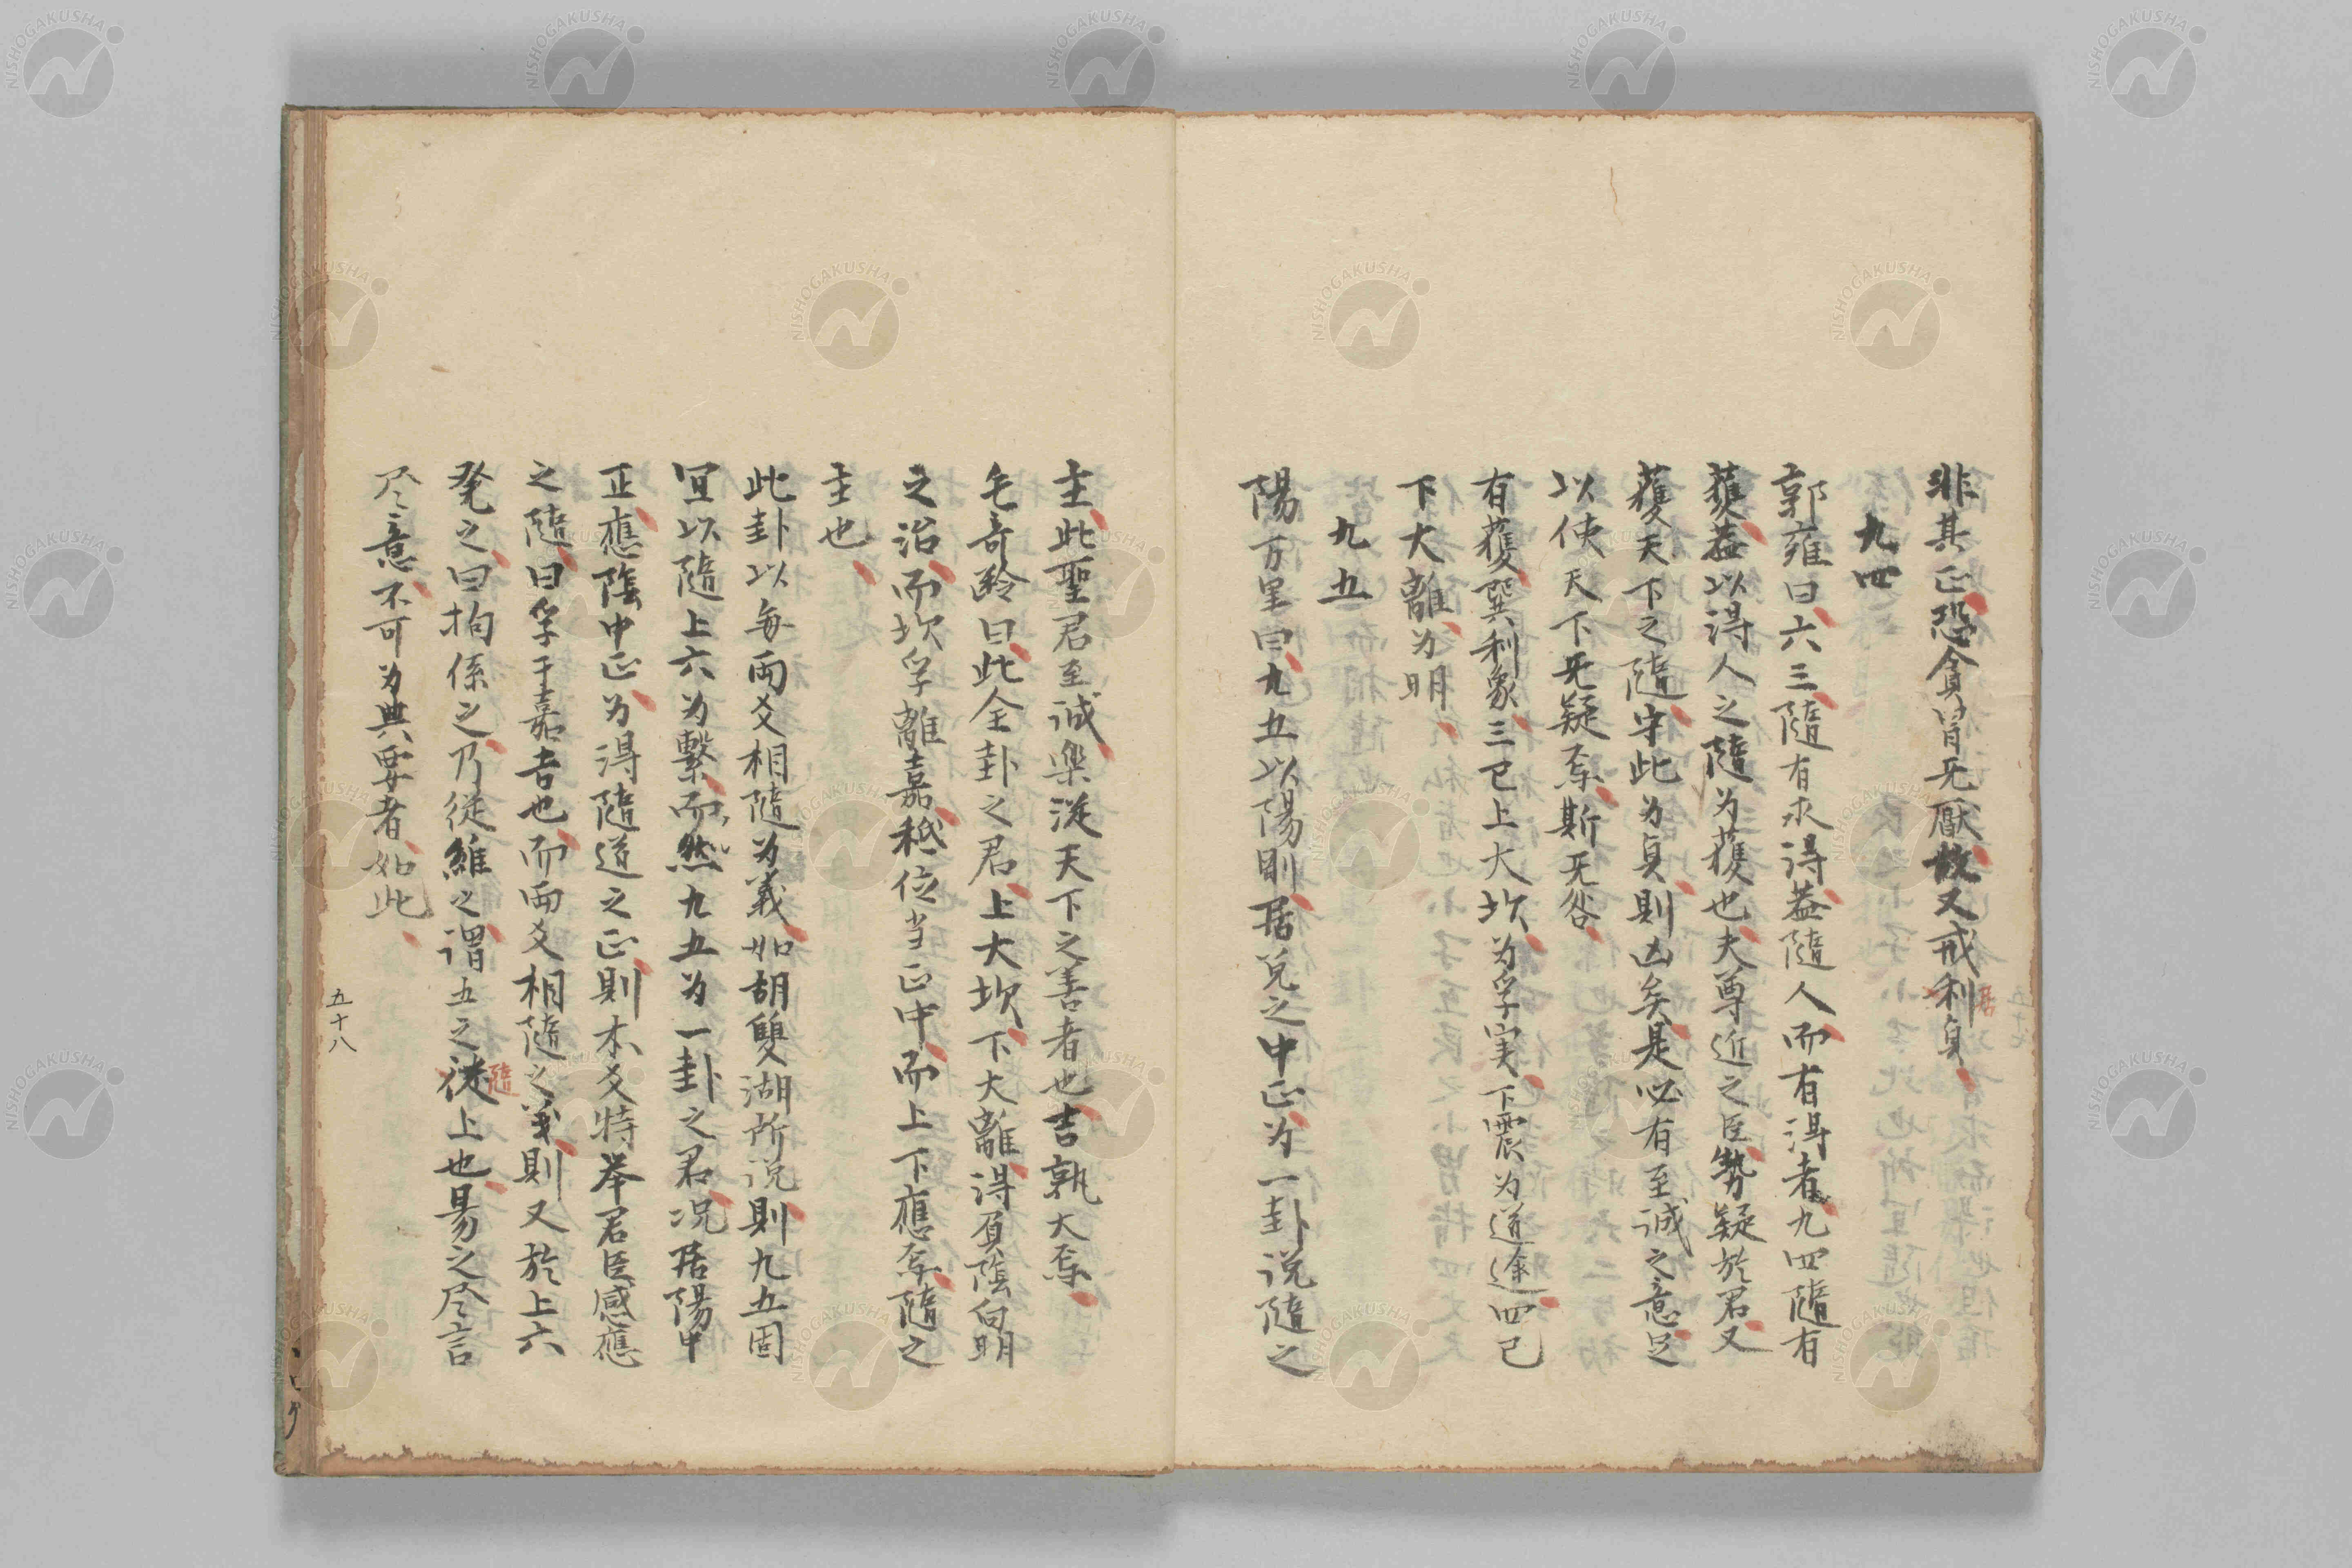 非其正恐貪冒无厭故又戒利貞
居
九四
郭雍曰六三隨有求得蓋隨人而有得者九四隨有
獲蓋以得人之隨为獲也夫尊近之臣勢疑於君又
獲天下之隨守此为貞則凶矣是必有至誠之意足
以使天下无疑焉斯无咎
有獲巽利象三已上大坎为孚实下震为道途四已
下大離为明
九五
陽万里曰九五以陽剛居兌之中正为一卦说隨之
主此聖君至誠樂従天下之善者也吉孰大焉
毛奇齡曰此全卦之君上大坎下大離得負陰向明
之治而坎孚離嘉秪位当正中而上下應焉隨之
主也
此卦以每両爻相隨为義如胡雙湖所说則九五固
宜以隨上六为繫而然九五为一卦之君况居陽中
正應陰中正为得隨道之正則本爻特举君臣感應
之隨曰孚于嘉吉也而両爻相隨之義則又於上六
発之曰拘係之乃従維之謂五之従上也易之尽言
隨
尽意不可为典要者如此
五十八
NISHOGAKUSHA